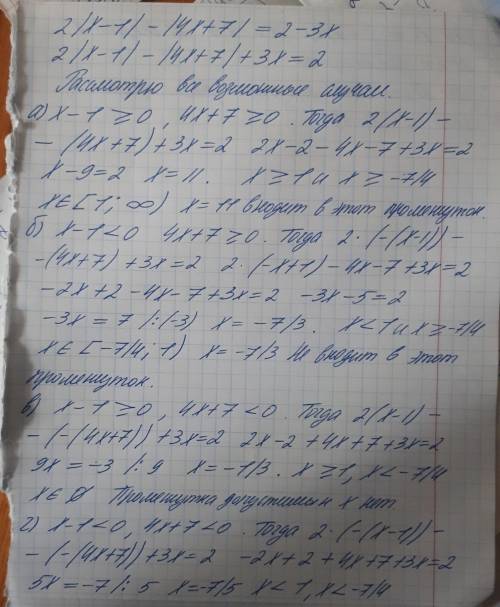 2|x-1| - |4x+7| = 2-3x
2|x-1| - |4x+7| + 3x = 2
Рассмотрю все возможные случаи.
а) x-1 ≥ 0 , 4x+7 ≥ 0 . Тогда 2(x-1) -
- (4x+7) + 3x = 2 2x-2-4x-7+3x=2
x-9=2 x=11. x ≥ 1 и x ≥ -7/4
x ∈ [1; ∞) x = 11 входит в этот промежуток.
б) x-1<0 4x+7 ≥ 0. Тогда 2·(-(x-1)) -
-(4x+7) + 3x = 2 2·(-x+1) - 4x-7+3x=2
-2x+2-4x-7+3x=2 -3x-5=2
-3x = 7 /:(-3) x = -7/3. x<1 и x ≥ -7/4
x ∈ [-7/4; 1) x = -7/3 не входит в этот
промежуток.
в) x-1 ≥ 0 , 4x+7 < 0 . Тогда 2(x-1) -
- (-(4x+7)) + 3x=2 2x-2+4x+7+3x=2
9x = -3 /:9 x = -1/3. x ≥ 1, x < -7/4
x ∈ ∅ Промежутка допустимых x нет.
г) x-1<0, 4x+7<0 . Тогда 2·(-(x-1)) -
- (-(4x+7)) + 3x = 2 -2x+2+4x+7+3x=2
5x = -7 /:5 x=-7/5 x < 1, x < -7/4